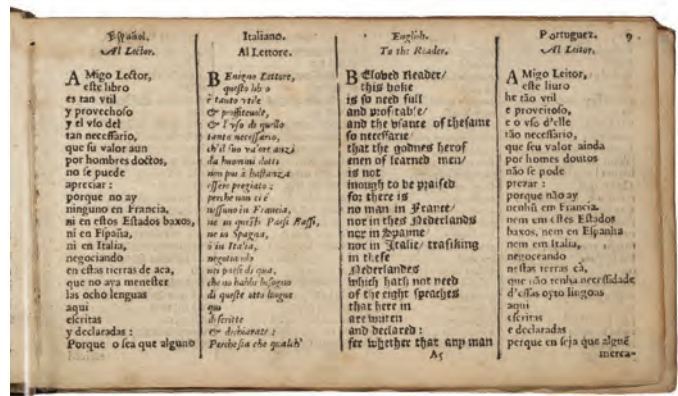 Español.
Al Lector.
AMigo Lector,
este libro
es tan vtil
y provechoso
y el vso del
tan necessario,
que su valor aun
por hombres doctos,
no se puede
apreciar :
porque no ay
ninguno en Francia,
ni en estos Estados baxos,
ni en España,
ni en Italia,
negociando
en estas tierras de aca,
que no aya menester
las ocho lenguas
aqui
escritas
y declaradas :
Porque o sea que alguno
Italiano.
Al Lettore.
BEnigno Lettore,
questo libro
è tanto vtile
& profitteuole,
& l'vso di quello
tanto necessario,
ch'il suo valore anzi
da huomini dotti
non può à bastanza
essere pregiato :
perche non vi è
nissuno in Francia,
ne in questi Paesi Bassi,
ne in Spagna,
ò in Italia,
negotiando
nei paesi di qua,
che no habbi bisogno
di queste otto lingue
qui
descritte
& dichiarate :
Perche sia che qualch'
English.
To the Reader.
BEloved Reader/
this boke
is so need full
and profitable/
and the vsance of thesame
so necessarie/
that the godnes herof
euen of learned men/
is not
inough to be praised
for there is
no man in France/
nor in thes Nederlands
nor in Spayne/
nor in Italie/ trafiking
in these
Nederlandes
which hath not need
of the eight speaches
that here in
are writen
and declared :
for whether that any man
A5
Portuguez.
9
Al Leitor.
AMigo Leitor,
este liuro
he tão vtil
e proveitoso,
e o vso d'elle
tão necessario,
que seu valor ainda
por homes doutos
não se pode
prezar :
porque não ay
nenhũ em Francia.
nem em estes Estados
baxos, nem en Espanha
nem em Italia,
negoceando
nestas terras cà,
que não tenha necessidade
d'estas oyto lingoas
aqui
escritas
e declaradas
perque en seja que alguẽ
merca-